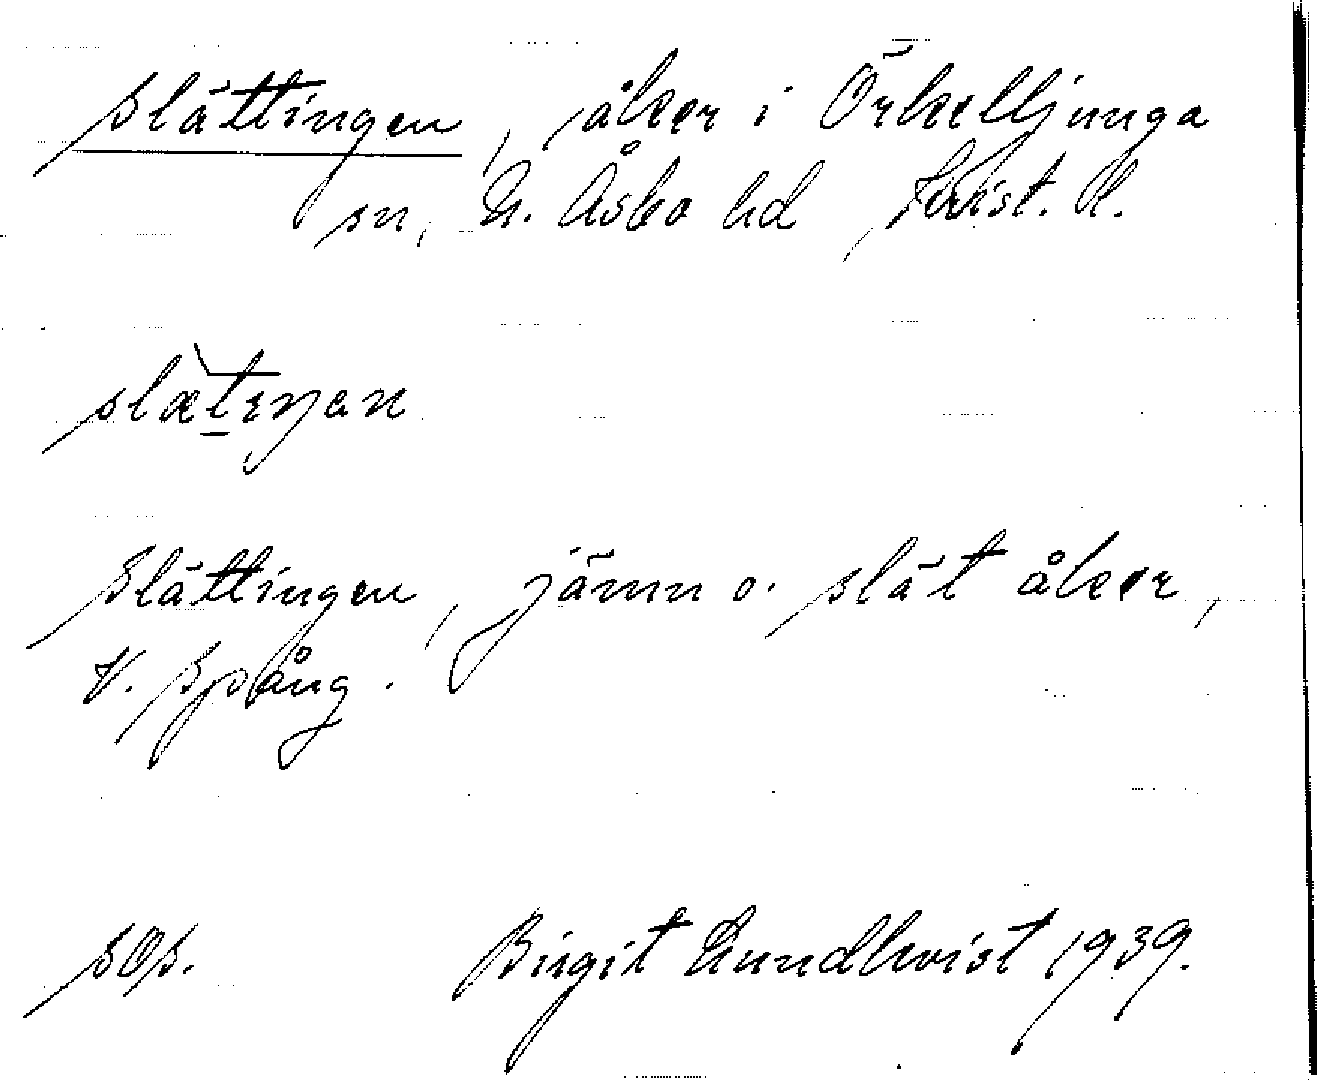 Slättingen, åker i Örkelljunga
sn, N. Åsbo hd, Krist. l.
slætıŋan
Slättingen, jämn o. slät åker,
V. Spång.
Birgit Lundkvist 1939.